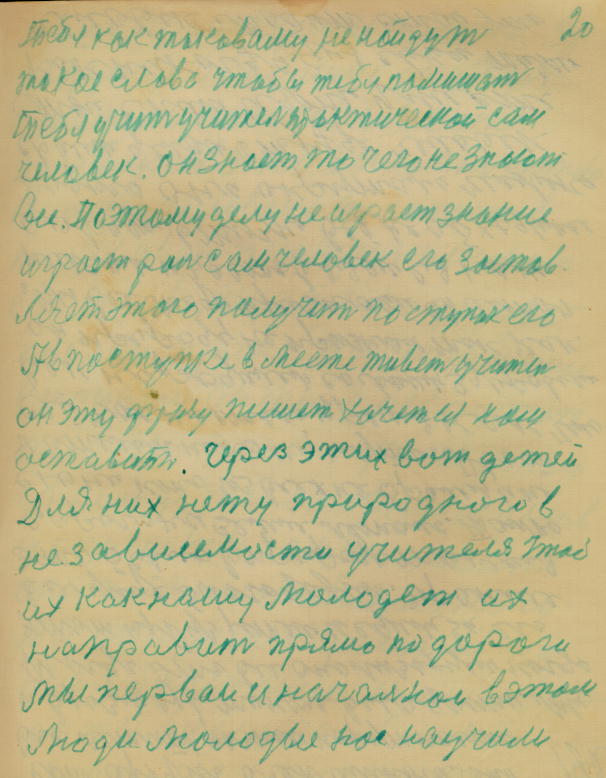 20
Тебя как таковаму не нойдут
такое слова чтобы тебу помишат
Тебя учит учител практической сам
человек. он знает то чего не знают
Вы. Поэтому делу не играет знание
играет рол сам человек его застов.
ляет этого палучит поступък его
А в поступке в месте живет учител
он эту фразу пишет хочется нам
оставить. через этих вот детей
Для них нету природного в
независемости учителя чтоб
их как нашу молодеж их
направит прямо по дороги
мы первои и началнои в этом
Люди молодые нас научили